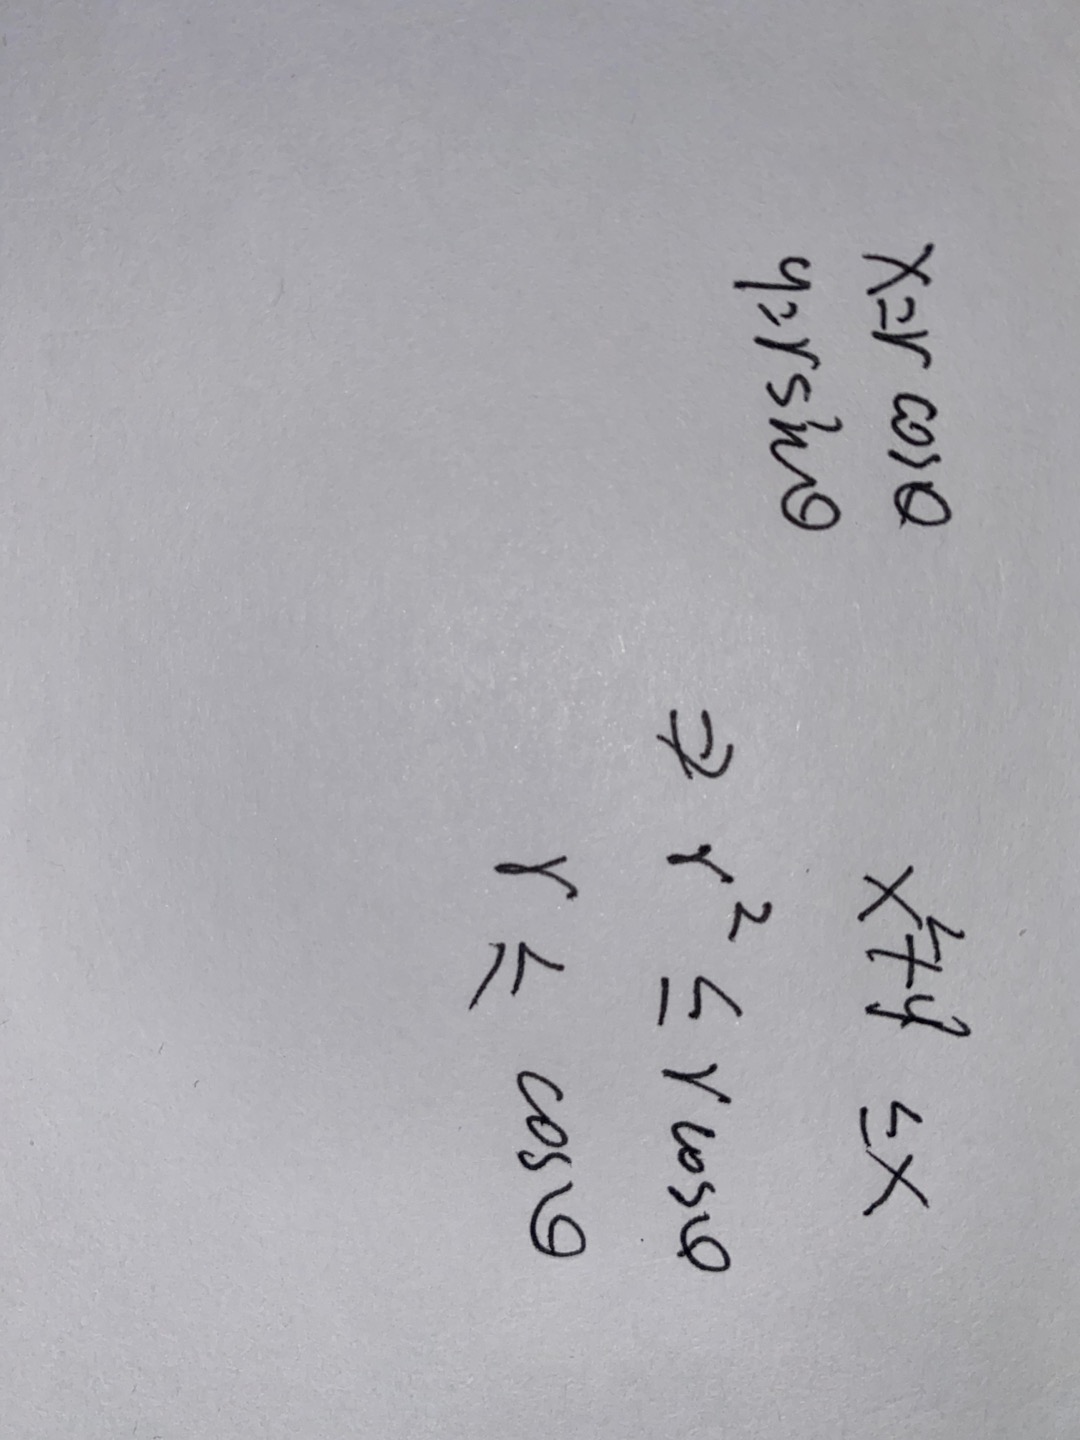 x=r cosθ
y=r sinθ
x²+y² ≤x
⇒ r² ≤ r cosθ
r ≤ cosθ